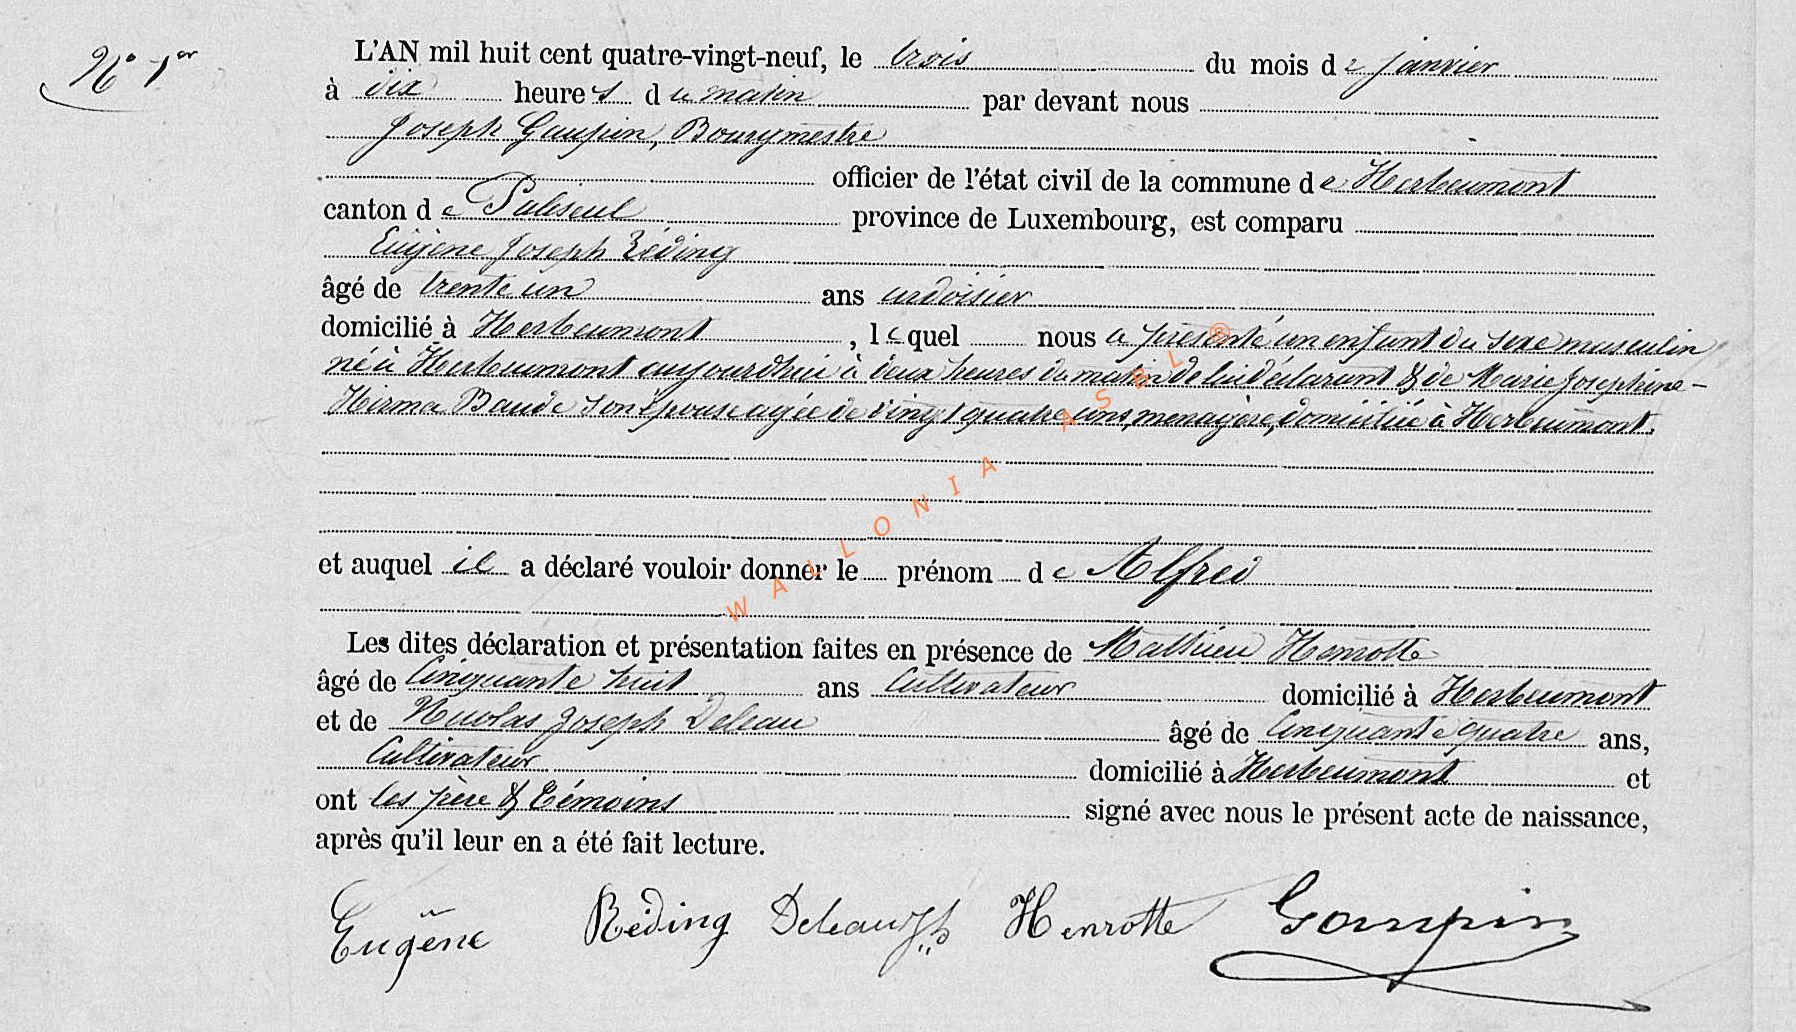 N° 1er
L'AN mil huit cent quatre-vingt-neuf, le trois du mois de janvier
à dix heures du matin par devant nous
Joseph Gaupin, Bourgmestre
officier de l'état civil de la commune de Herbeumont
canton de Paliseul province de Luxembourg, est comparu
Eugène Joseph Réding
âgé de trente un ans ardoisier
domicilié à Herbeumont, lequel nous a présenté un enfant du sexe masculin
né à Herbeumont aujourdhui à deux heures du matin de lui déclarant & de Marie Josephine-
Hirma Baude son épouse agée de vingt quatre ans, menagère, domiciliée à Herbeumont.
et auquel il a déclaré vouloir donner le prénom de Alfred
Les dites déclaration et présentation faites en présence de Mathieu Henrotte
âgé de Cinquante huit ans Cultivateur domicilié à Herbeumont
et de Nicolas Joseph Deleau âgé de Cinquante quatre ans,
Cultivateur domicilié à Herbeumont et
ont les père & témoins signé avec nous le présent acte de naissance,
après qu'il leur en a été fait lecture.
Eugène Réding Deleau Jh Henrotte Gaupin
WALLONIA ASBL ®